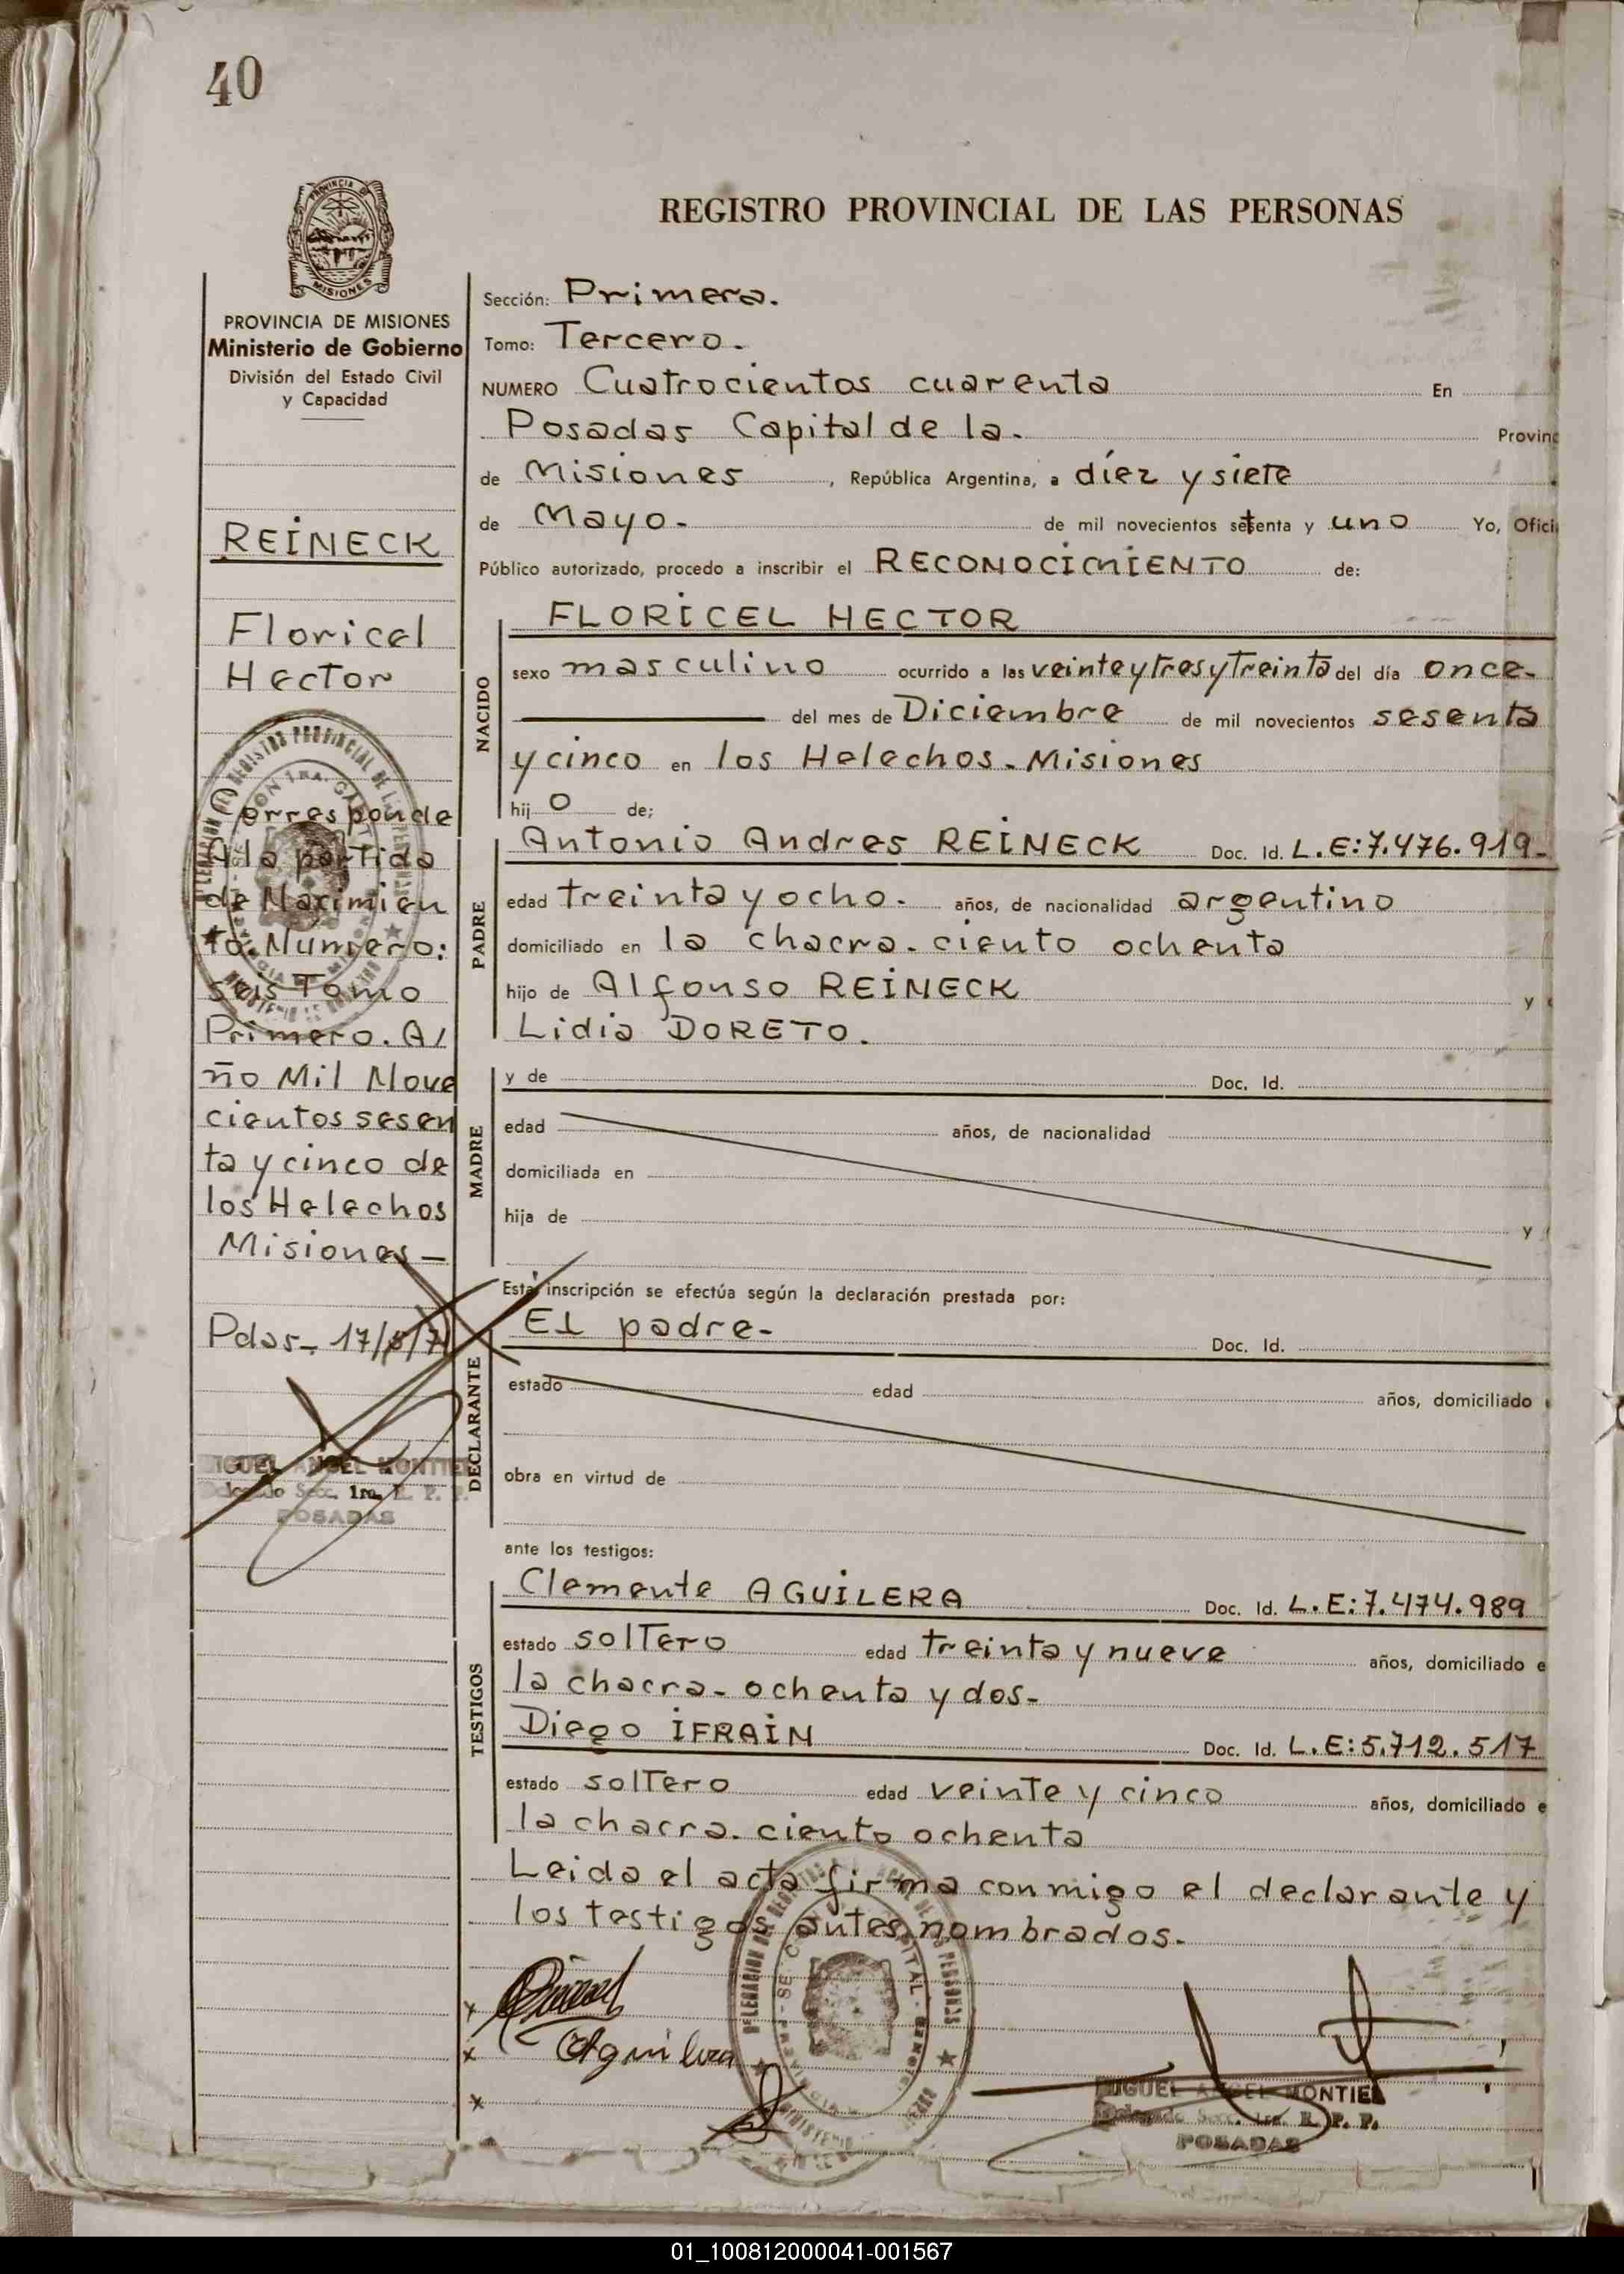 40
PROVINCIA DE
MISIONES
REGISTRO PROVINCIAL DE LAS PERSONAS
PROVINCIA DE MISIONES
Ministerio de Gobierno
División del Estado Civil
y Capacidad
REINECK
Floricel
Hector
Corresponde
A la partida
de Nacimien
to. Numero:
seis Tomo
Primero. A/
ño Mil Nove
cientos sesen
ta y cinco de
los Helechos
Misiones-
Pdas-. 17/5/71
MIGUEL ANGEL MONTIEL
Delegado Secc. 1ra. R. P. P.
POSADAS
Sección: Primera.
Tomo: Tercero.
NUMERO Cuatrocientos cuarenta En
Posadas Capital de la. Provinc
de Misiones, República Argentina, a díez y siete
de Mayo- de mil novecientos setenta y uno Yo, Ofici
Público autorizado, procedo a inscribir el RECONOCIMIENTO de:
NACIDO
FLORICEL HECTOR
sexo masculino ocurrido a las veinte y tres y Treinta del día once-
del mes de Diciembre de mil novecientos sesenta
y cinco en los Helechos-Misiones
hij o de;
PADRE
Antonio Andres REINECK Doc. Id. L.E:7.476.919-
edad treinta y ocho. años, de nacionalidad argentino
domiciliado en la chacra. ciento ochenta
hijo de Alfonso REINECK y
Lidia DORETO.
MADRE
y de Doc. Id.
edad años, de nacionalidad
domiciliada en
hija de y
Esta inscripción se efectúa según la declaración prestada por:
DECLARANTE
El padre- Doc. Id.
estado edad años, domiciliado
obra en virtud de
ante los testigos:
TESTIGOS
Clemente AGUILERA Doc. Id. L.E:7.474.989
estado solTero edad treinta y nueve años, domiciliado e
la chacra- ochenta y dos-
Diego IFRAIN Doc. Id. L.E:5.712.517
estado solTero edad veinte y cinco años, domiciliado e
la chacra. ciento ochenta
Leida el acta firma conmigo el declarante y
los testigos antes nombrados.
x
x Aguilera
x
MIGUEL ANGEL MONTIEL
Delegado Secc. 1ra. R. P. P.
POSADAS
01_100812000041-001567